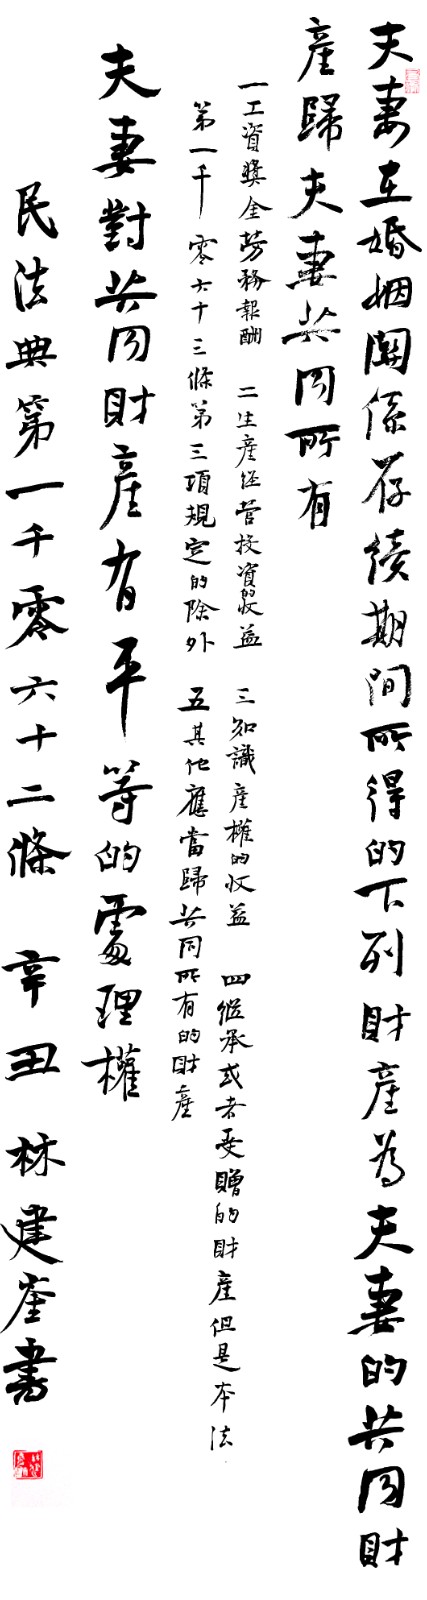 夫妻在婚姻關係存續期間所得的下列財產為夫妻的共同財
產歸夫妻共同所有
一工資獎金勞務報酬 二生產經營投資的收益 三知識產權的收益 四繼承或者受贈的財產但是本法
第一千零六十三條第三項規定的除外 五其他應當歸共同所有的財產
夫妻對共同財產有平等的處理權
民法典第一千零六十二條 辛丑 林建奎書